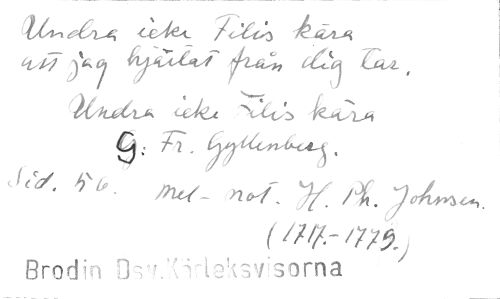 Undra icke Filis kära
att jag hjärtat från dig tar.
Undra icke Filis kära
G: Fr. Gyllenberg.
Sid. 56. mel- not. H. Ph. Johnsen.
(1717.-1779.)
Brodin Dsv.Kärleksvisorna